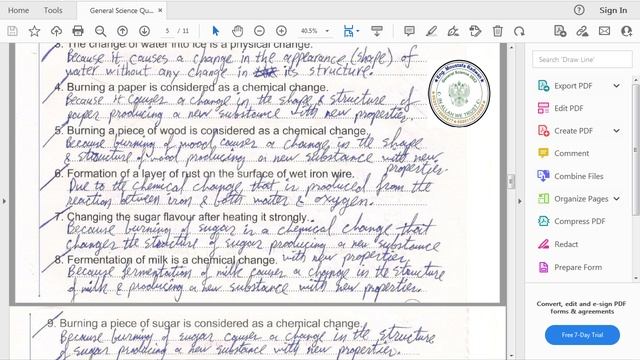 Home
Tools
General Science Qu...
Sign In
5 / 11
40.5%
3. The change of water into ice is a physical change.
Because it causes a change in the appearance (shape) of
water without any change in its structure.
4. Burning a paper is considered as a chemical change.
Because it causes a change in the shape & structure of
paper producing a new substance with new properties.
5. Burning a piece of wood is considered as a chemical change.
Because burning of wood causes a change in the shape
& structure of wood producing a new substance with new
properties.
6. Formation of a layer of rust on the surface of wet iron wire.
Due to the chemical change that is produced from the
reaction between iron & both water & oxygen.
7. Changing the sugar flavour after heating it strongly.
Because burning of sugar is a chemical change that
changes the structure of sugar producing a new substance
with new properties.
8. Fermentation of milk is a chemical change.
Because fermentation of milk causes a change in the structure
of milk & producing a new substance with new properties.
9. Burning a piece of sugar is considered as a chemical change.
Because burning of sugar causes a change in the structure
of sugar producing a new substance with new properties.
Search 'Draw Line'
Export PDF
Edit PDF
Create PDF
Comment
Combine Files
Organize Pages
Compress PDF
Redact
Prepare Form
Convert, edit and e-sign PDF
forms & agreements
Free 7-Day Trial